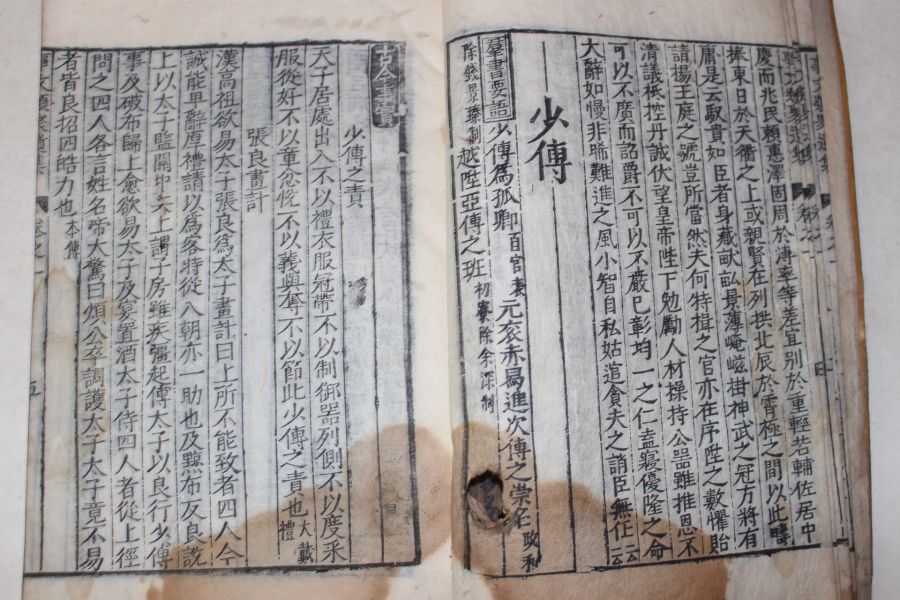 慶而兆民賴惠澤固周於溥率等差宜別於重輕若輔佐居中
捧東日於天衢之上或親賢在列拱北辰於霄極之間以此疇
庸是云馭貴如臣者身藏畎畝景薄崦嵫掛神武之冠方將有
請揚王庭之號豈所當然夫何特揖之官亦在序陞之數懼貽
清議祇控丹誠伏望皇帝陛下勉勵人材操持公器雖推恩不
可以不廣而詔爵不可以不嚴巳彰均一之仁盍寢優隆之命
大辭如慢非晞難進之風小智自私姑逭貪夫之誚臣無任云云
少傅
羣書要語 少傅爲孤卿 百官表 元衮赤舃進次傅之崇名 政和
除錢景臻制 越陞亞傅之班 初寮除余深制
古今事實
少傅之責
天子居處出入不以禮衣服冠帶不以制御器列側不以度采
服從好不以章忿恱不以義與奪不以節此少傅之責也 大戴禮
張良畫計
漢高祖欲易太子張良爲太子畫計曰上所不能致者四人今
誠能卑辭厚禮請以爲客時從入朝亦一助也及黥布反良說
上以太子監關中兵上謂子房雖疾彊起傅太子以良行少傅
事及破布歸上愈欲易太子及宴置酒太子侍四人者從上徑
問之四人各言姓名帝大驚曰煩公卒調護太子太子竟不易
者皆良招四皓力也 本傳
五